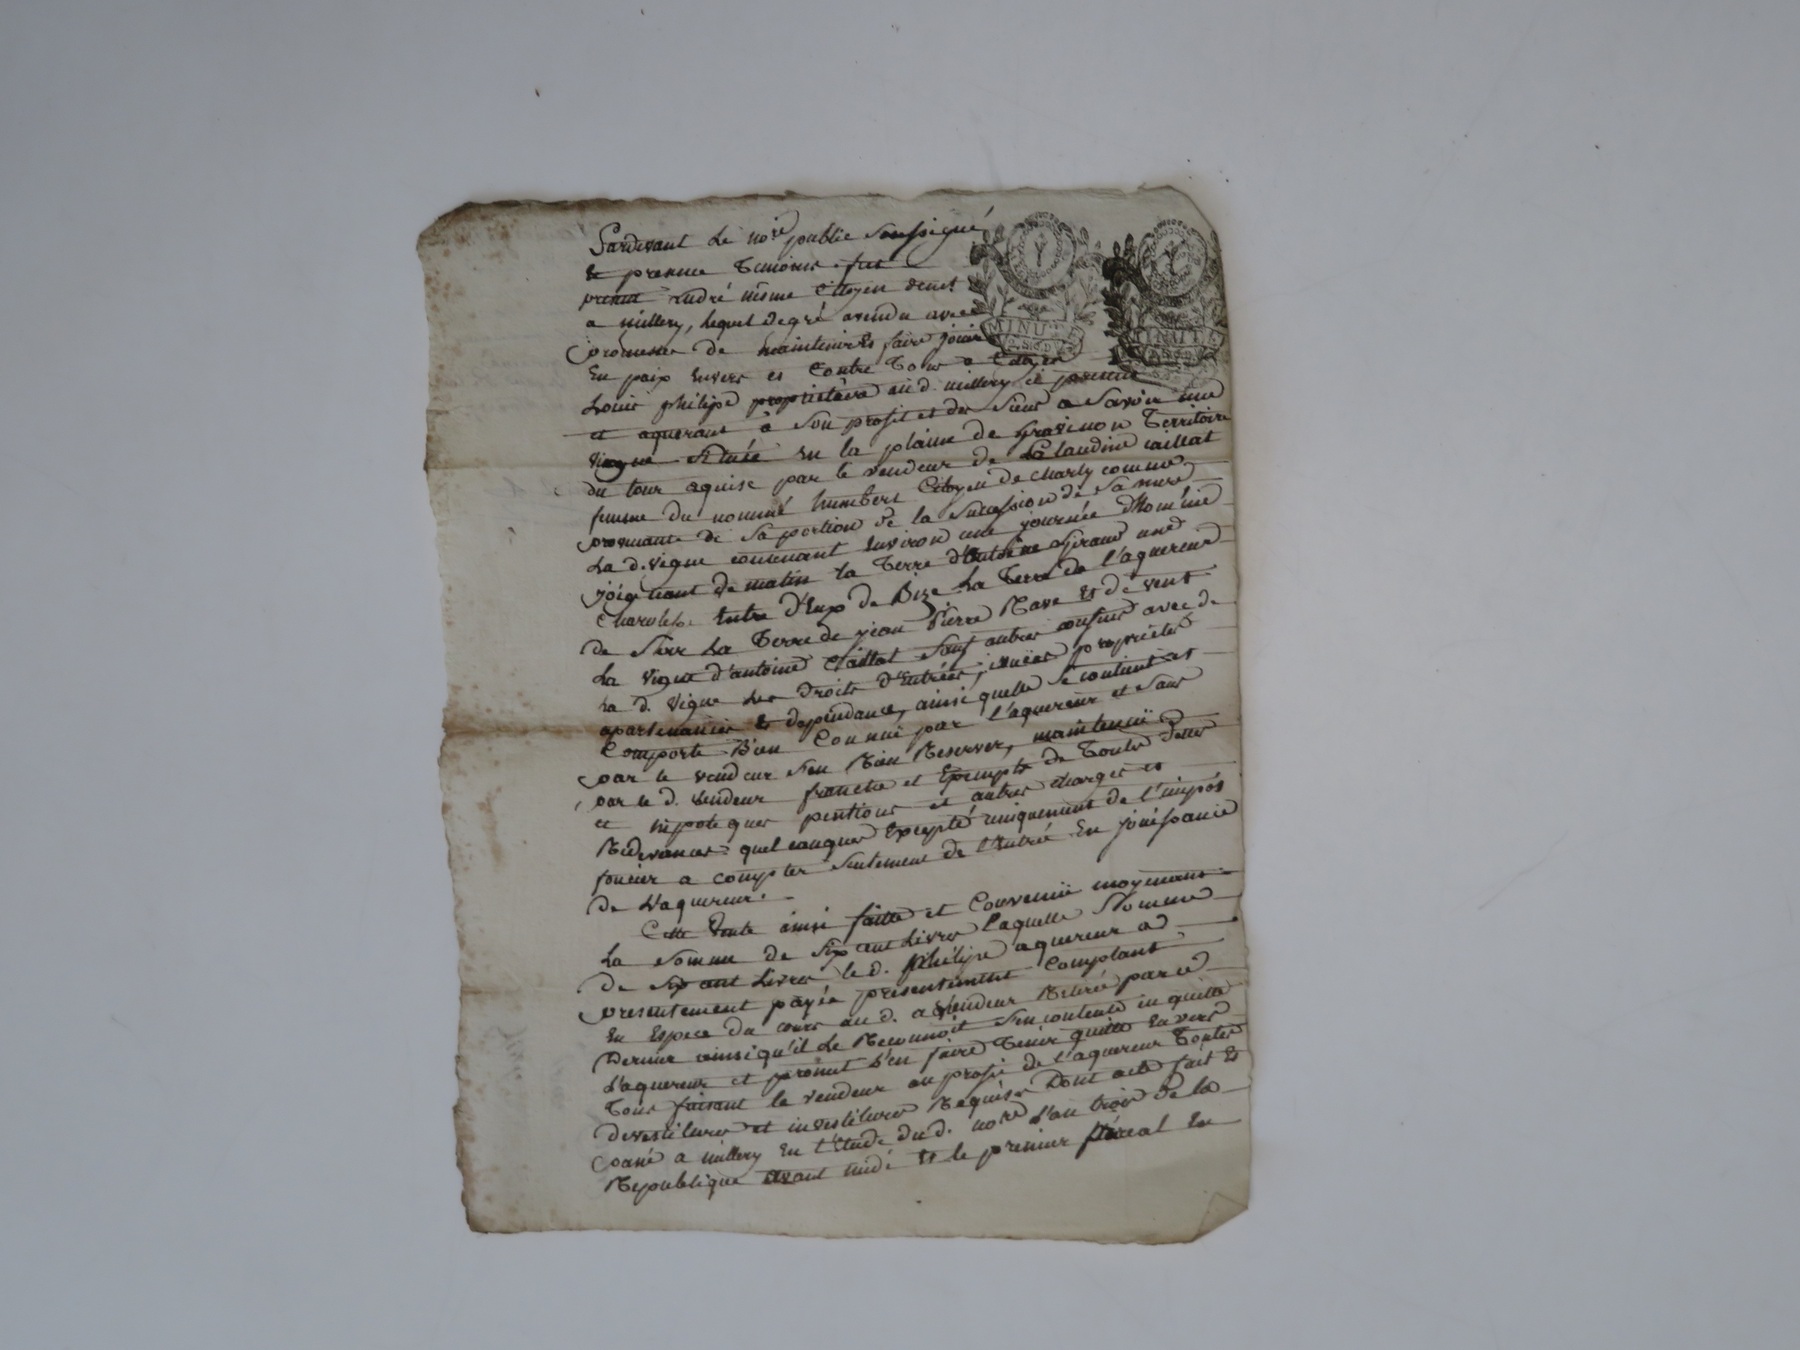 Pardevant le nore public soussigné
et presence Temoins fut
present André nisme Citoyen demt
a millery, lequel degré a vendu avec
promesse de maintenir et faire jouir
En paix Envers et Contre Tous a Citoyen
Louis philipe propriétaire au d. millery ici present
et aquerant à son profit et des siens a savoir une
vigne située en la plaine de gravinon Territoire
du tour aquise par le vendeur de la Claudine Caillat
femme du nommé humbert Citoyen de Charly comme
provenante de sa portion de la succession de sa mere
La d. vigne contenant environ une journée d'homme
joignant de matin la Terre d'antoine giraud une
Charriere Entre d'Eux de Bize La Terre de l'aquereur
de Soir La Terre de jean Pierre Rave Et de vent
La vigne d'antoine Caillat sauf autres confins avec de
la d. vigne Les Droits d'Entrées, issües proprietés
apartenances Et dependances, ainsi quelle se contient et
Comporte Bien Connue par l'aquereur et sans
par le vendeur s'en Rien Reserver, maintenüe
par le d. vendeur franche et Exempte de Toutes dettes
et hipoteques pentions et autres charges et
Redevances quelconques Excepté uniquement de l'impôt
foncier a compter seulement de l'Entrée En jouissance
de L'aquereur.
Cette Vente ainsi faitte et Convenüe moyenant
La somme de six cent Livres laquelle somme
de six cent Livres le d. philipe aquereur a
presentement payée presentement Comptant
En Espece du cours au d. vendeur Retiré par ce
Dernier ainsi qu'il Le Reconnoit s'en contente en quitte
L'aquereur et promet L'en faire Tenir quitte Envers
Tous faisant le vendeur au profit de l'aquereur Toutes
devestitures et investitures Requises Dont acte fait Et
passé a millery En l'Etude du d. nore L'an trois de la
Republique avant midi Et le premier floreal En
MINUTE
MINUTE